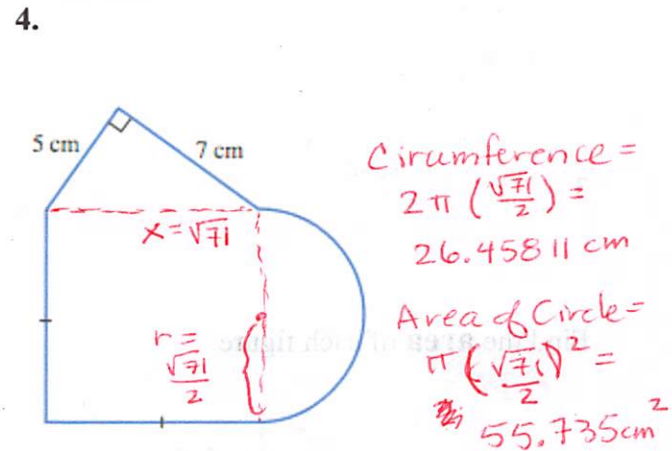 4.
5 cm
7 cm
x = √71
r =
√71
2
Cirumference =
2π (√71/2) =
26.45811 cm
Area of Circle =
π (√71/2)² =
55.735cm²